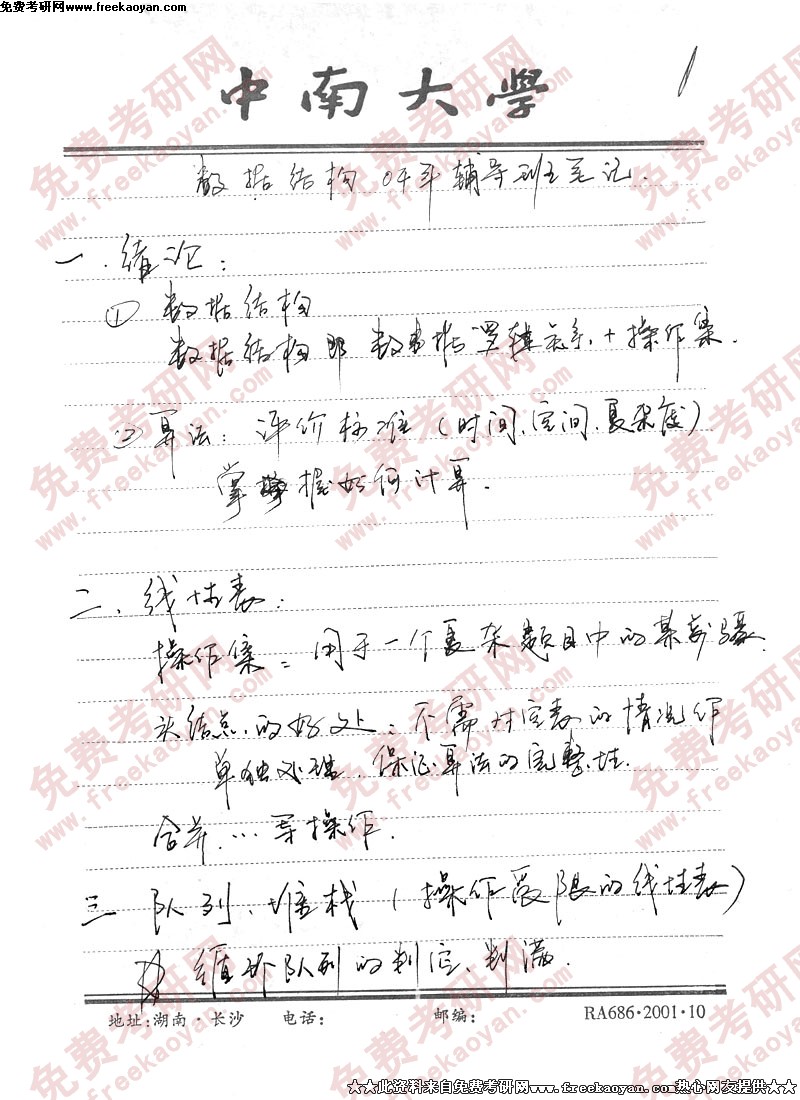 免费考研网www.freekaoyan.com
1
中南大學
数据结构 04年辅导班笔记.
一.绪论:
① 数据结构
数据结构即数据逻辑关系+操作集.
② 算法:评价标准(时间、空间、复杂度)
掌握如何计算.
二.线性表:
操作集:用于一个复杂题目中的某步骤.
头结点的好处:不需对空表的情况作
单独处理,保证算法的完整性.
合并.…等操作.
三 队列、堆栈(操作受限的线性表)
循环队列的判空、判满.
地址:湖南·长沙 电话: 邮编: RA686·2001·10
★★此资料来自免费考研网www.freekaoyan.com热心网友提供★★
免费考研网
www.freekaoyan.com